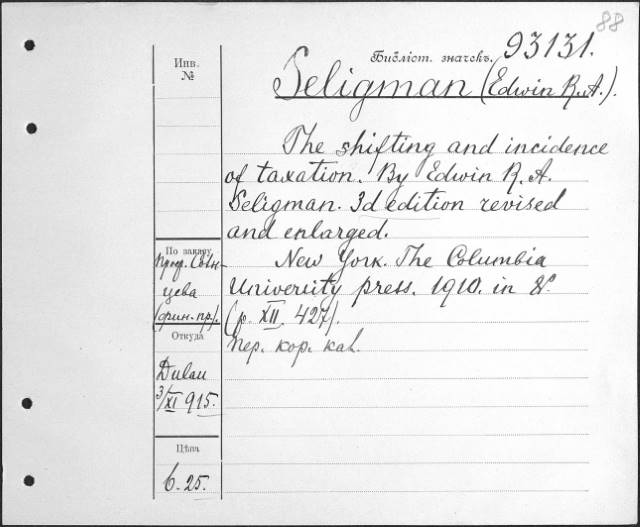 88
Библіот. значекъ. 93131.
Инв.
№
Seligman (Edwin R. A.).
The shifting and incidence
of taxation. By Edwin R. A.
Seligman. 3d edition revised
and enlarged.
New York. The Columbia
Univercity press. 1910. in 8°.
(p. XII, 427).
Пер. кор. каh.
По заказу
Проф.
цева
(фин. пр.).
Откуда
Dulau
3/XI 915.
Цѣна
6.25.